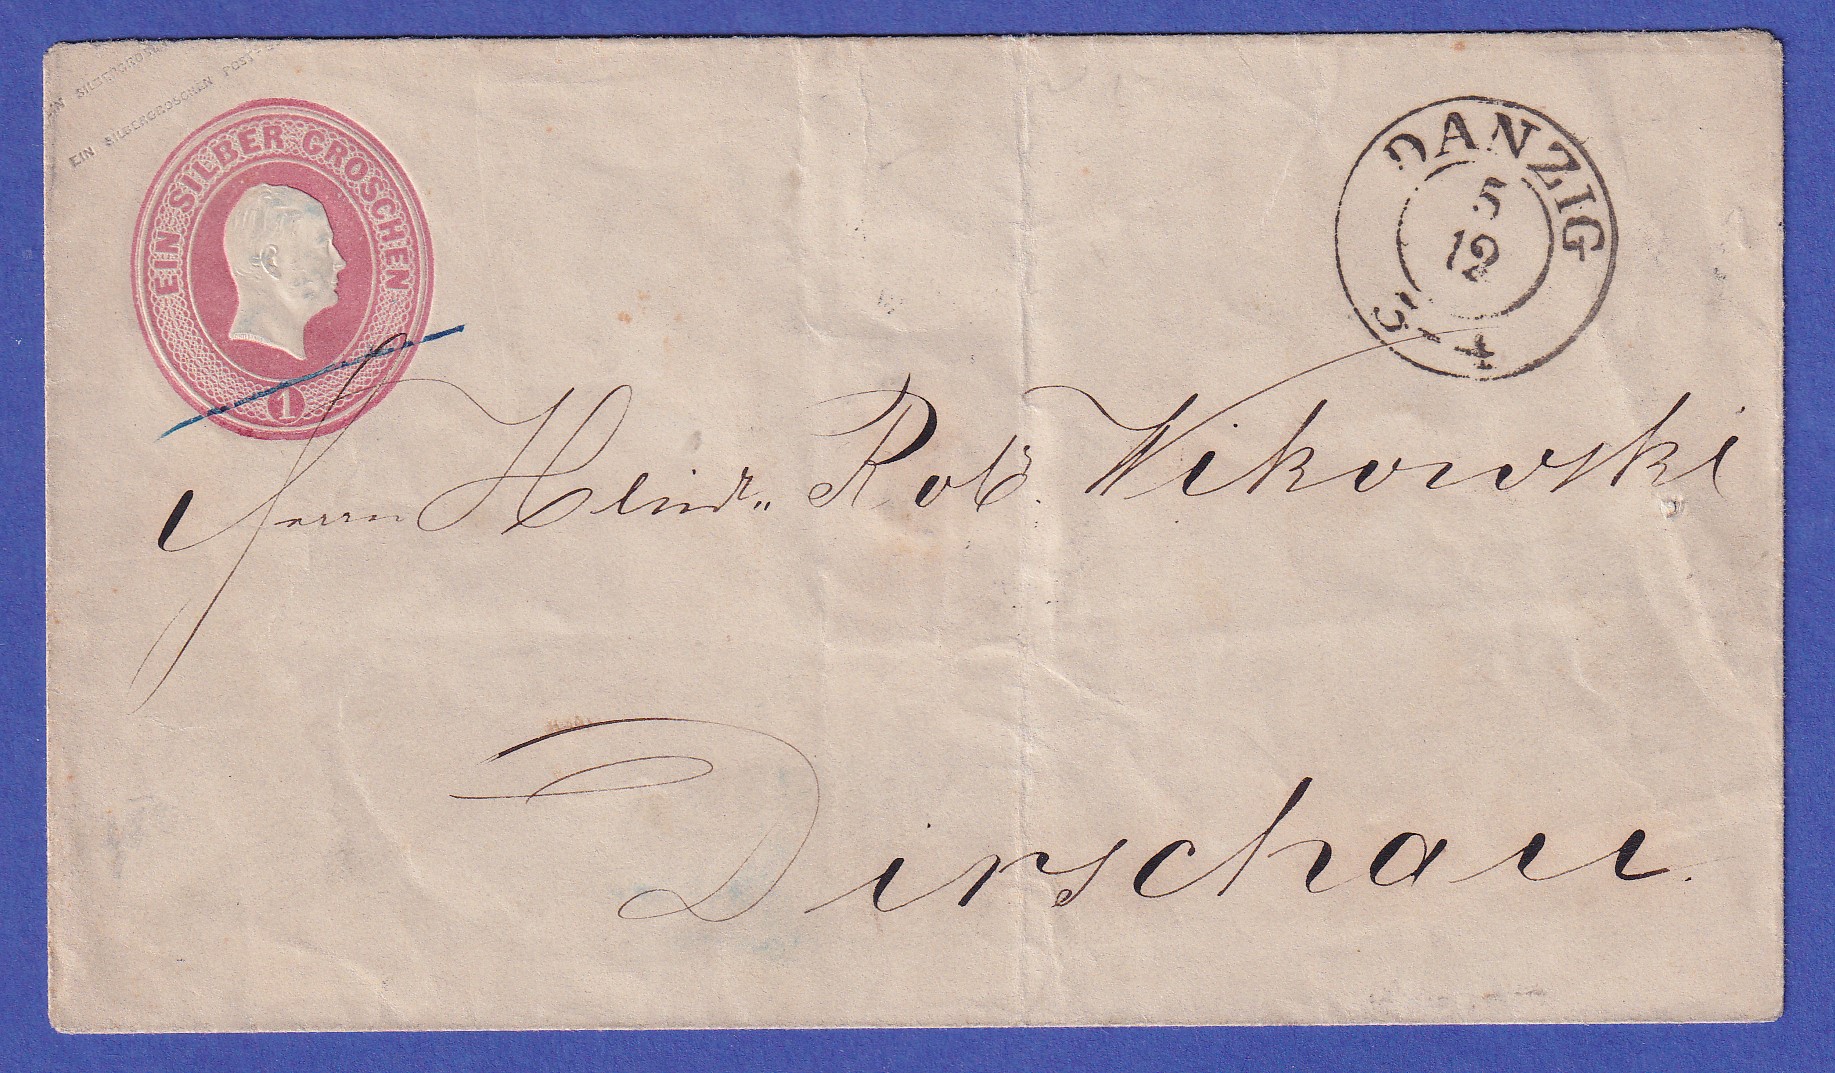 EIN SILBERGROSCHEN
EIN SILBERGROSCHEN POST
EIN SILBER GROSCHEN
1
DANZIG
5
12
5-4
Herrn Heinr. Rob. Wikowski
Dirschau.